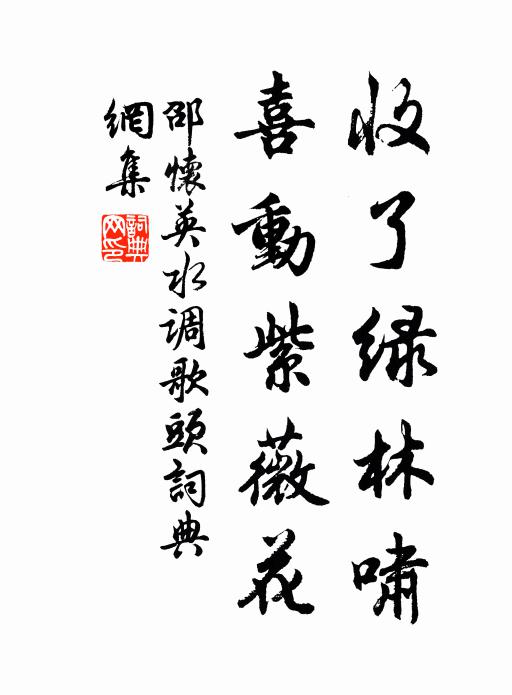 收了緑林嘯
喜動紫薇花
邵懷英水调歌頭詞典
網集
詞典
网印